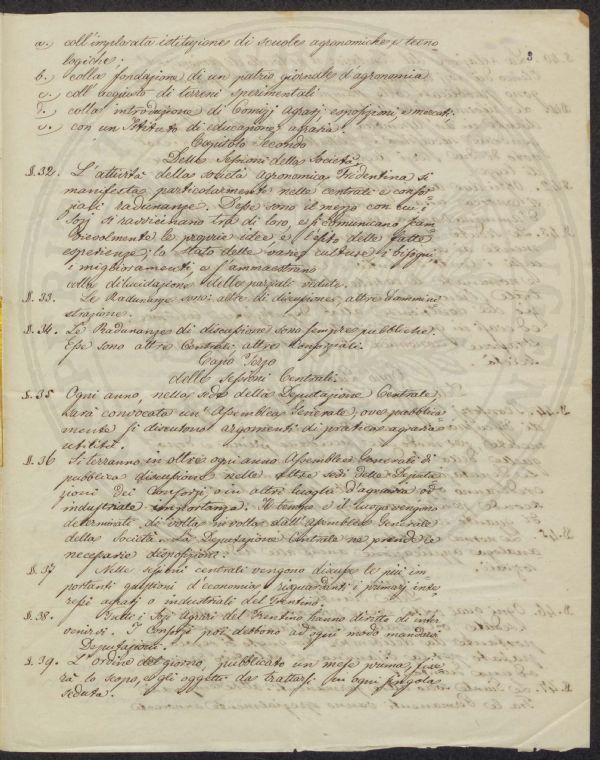 3
a.) coll'implorata istituzione di scuole agronomiche e tecno
logiche;
b.) colla fondazione di un patrio giornale d'agronomia
c.) coll'acquisto di terreni sperimentali
d.) colla introduzione di Comizj agrarj, esposizioni e mercati.
e.) con un Istituto di educazione agraria.
Capitolo Secondo
Delle Sessioni della Società
§. 32. L'attività della società agronomica Tridentina si
manifesta particolarmente nelle centrali e consor
ziali radunanze. Desse sono il mezzo con cui i
Sozj si ravvicinano tra di loro, e si comunicano scam
bievolmente le proprie idee, e l'esito delle fatte
esperienze; lo stato delle varie culture i bisogni,
i miglioramenti, e s'ammaestrano
colla dilucidazione delle parziali vedute.
§. 33. Le Radunanze sono: altre di discussione, altre d'ammini
strazione.
§. 34. Le Radunanze di discussione sono sempre pubbliche.
Esse sono altre Centrali, altre Consorziali.
Capo Terzo
delle Sessioni Centrali.
§. 35 Ogni anno, nella sede della Deputazione Centrale,
sarà convocata un'Assemblea Generale, ove pubblica
mente si discutono argomenti di pratica agraria
utilità.
§. 36 Si terranno inoltre ogni anno Assemblee Generali di
pubblica discussione nelle altre sedi delle Deputa
zioni dei Consorzj o in altri luoghi d'agraria od
industriale importanza. Il tempo e il luogo vengono
determinati di volta in volta dall'Assemblea Generale
della Società. La Deputazione Centrale ne prende le
necessarie disposizioni.
§. 37 Nelle sessioni centrali vengono discusse le più im
portanti questioni d'economia risguardanti i primarj inte
ressi agrarj o industriali del Trentino.
§. 38. Tutti i Sozj agrari del Trentino hanno diritto di inter
venirvi. I Consorzj poi debbono ad ogni modo mandare
Deputazioni.
§. 39. L'ordine del giorno, pubblicato un mese prima, fisse
rà lo scopo, e gli oggetti da trattarsi in ogni singola
seduta.